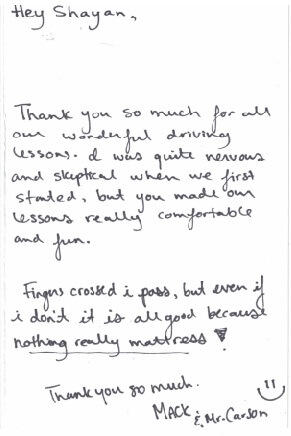 Hey Shayan,
Thank you so much for all
our wonderful driving
lessons. I was quite nervous
and skeptical when we first
started, but you made our
lessons really comfortable
and fun.
Fingers crossed i pass, but even if
i don't it is all good because
nothing really mattress
Thank you so much.
Mack & Mr. Carson